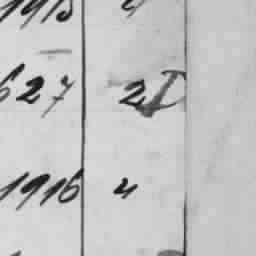 1915 4
627 2D
1916 4